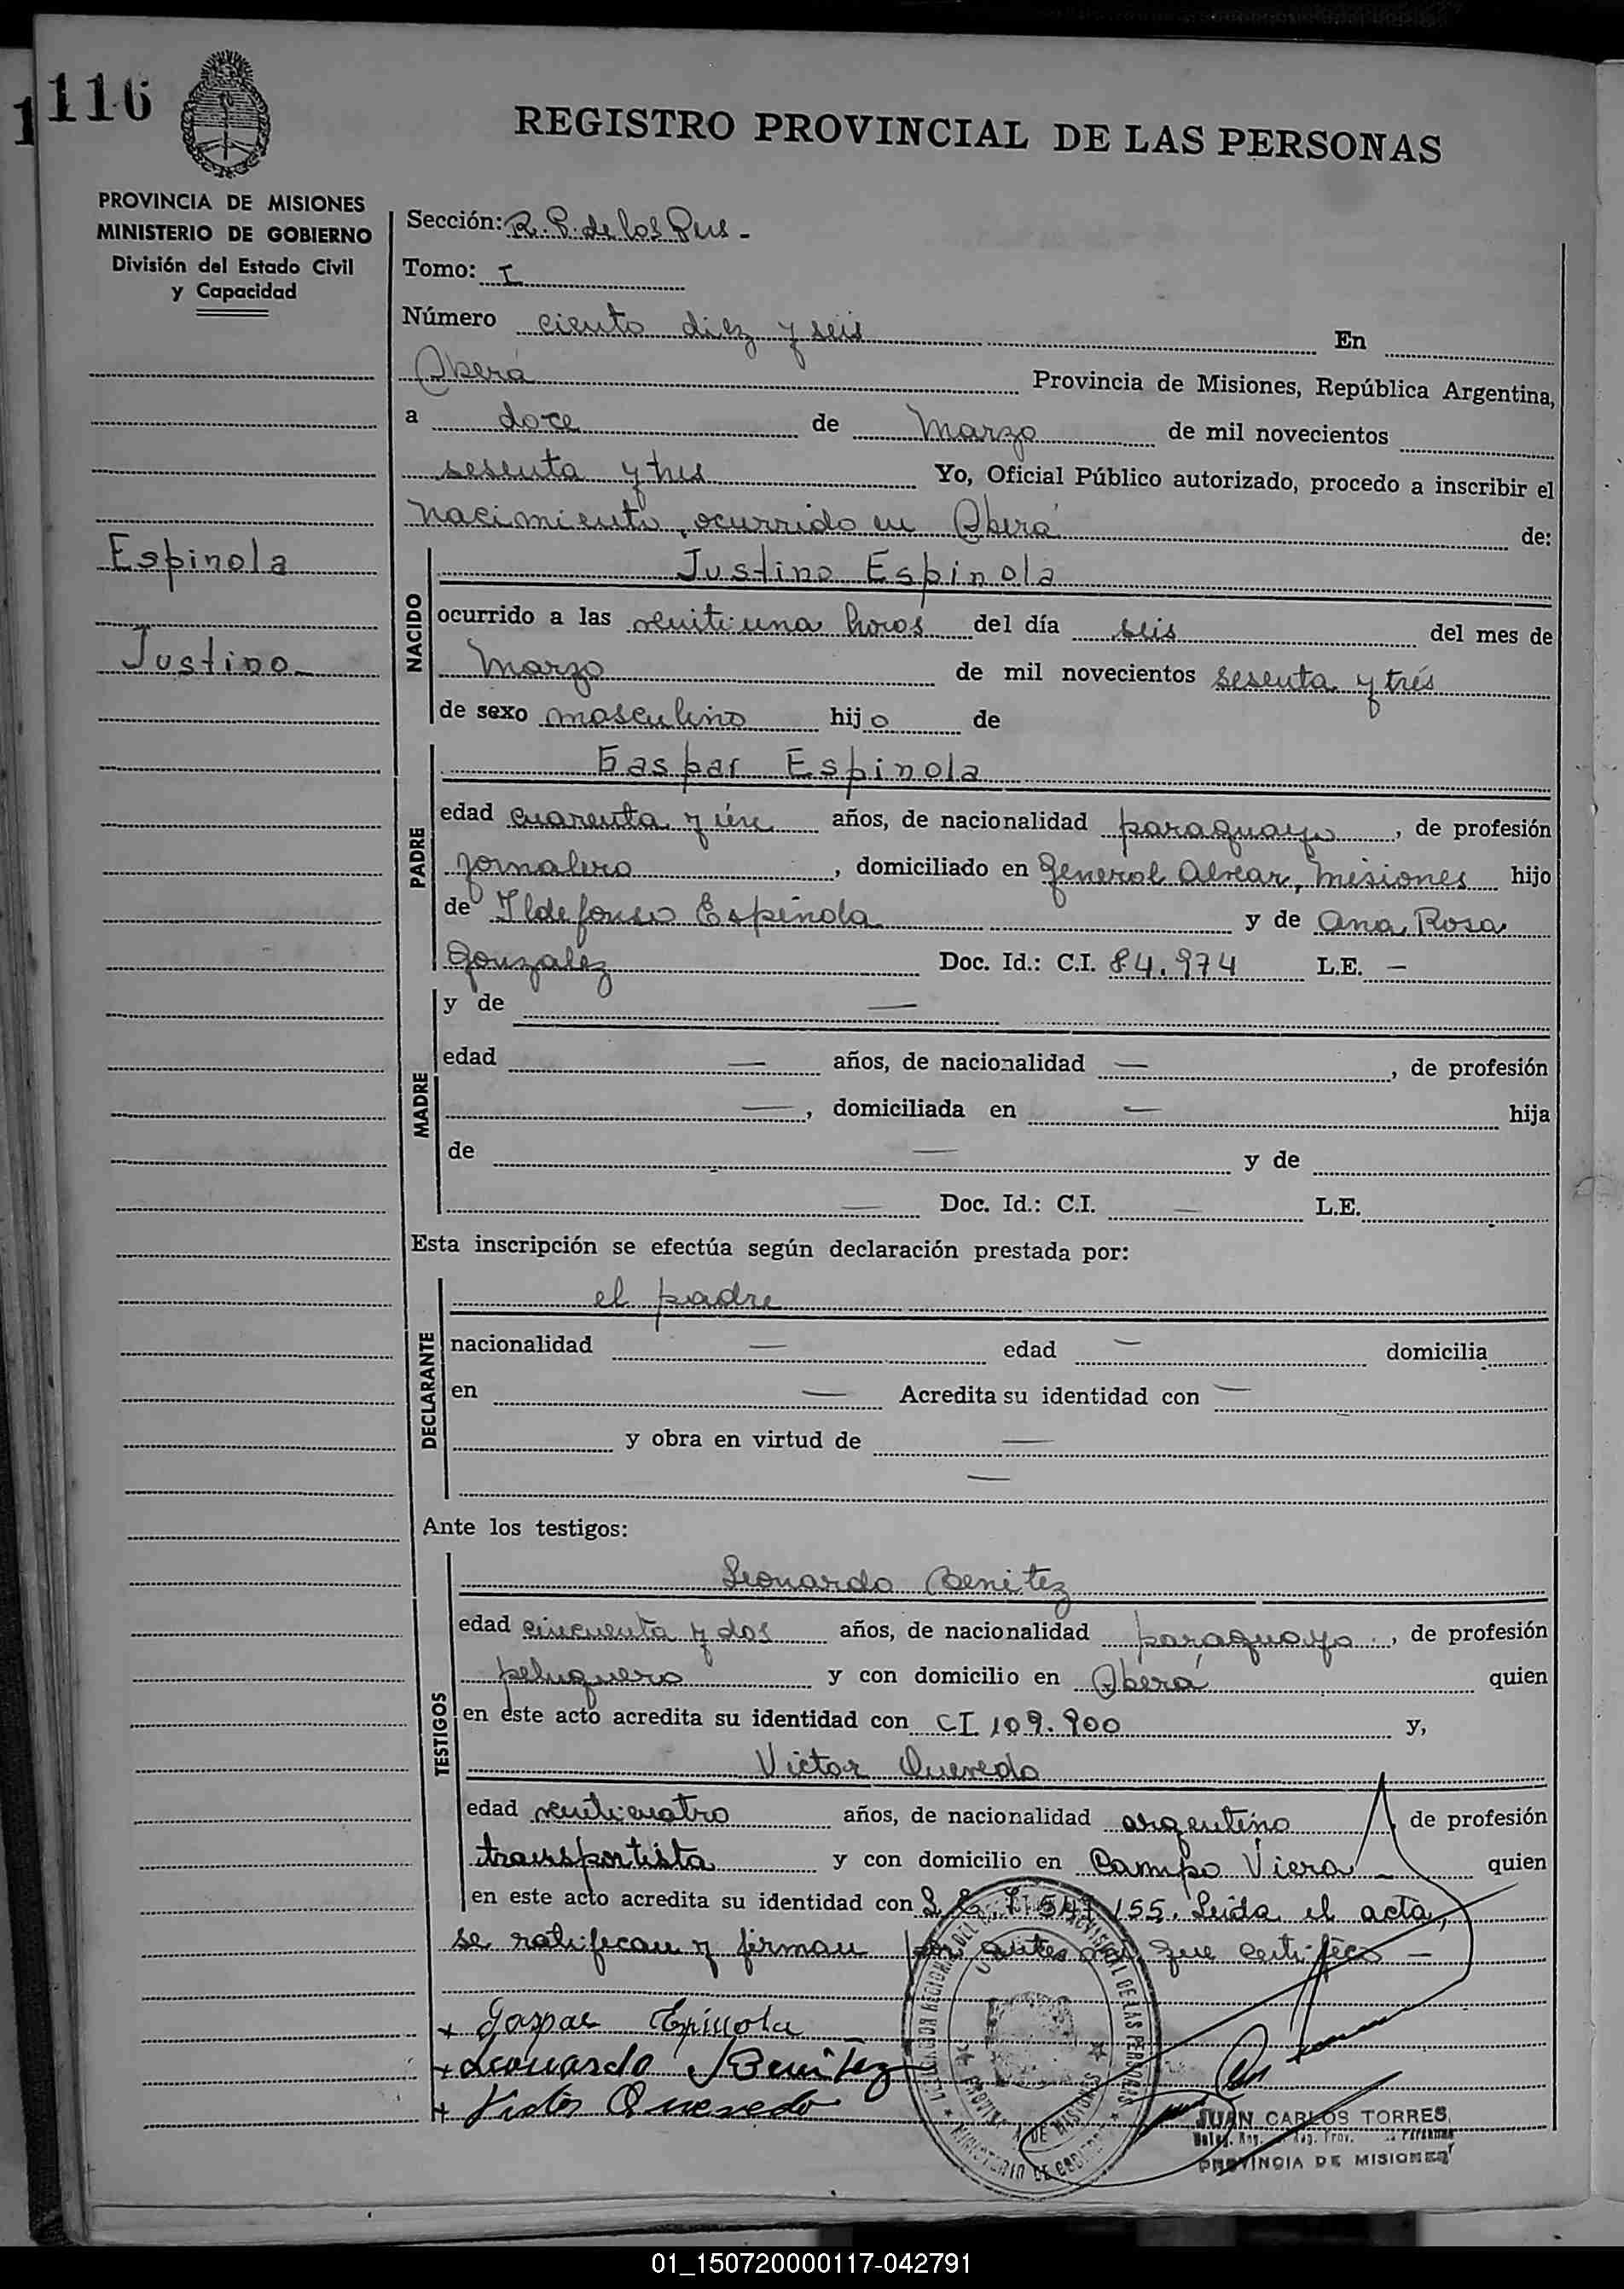 116
REGISTRO PROVINCIAL DE LAS PERSONAS
PROVINCIA DE MISIONES
MINISTERIO DE GOBIERNO
División del Estado Civil
y Capacidad
Espinola
Justino
Sección: R. P. de las Pers -
Tomo: I
Número ciento diez y seis En
Oberá Provincia de Misiones, República Argentina,
a doce de Marzo de mil novecientos
sesenta y tres Yo, Oficial Público autorizado, procedo a inscribir el
nacimiento ocurrido en Oberá de:
NACIDO
Justino Espinola
ocurrido a las veintiuna horas del día seis del mes de
Marzo de mil novecientos sesenta y trés
de sexo masculino hijo de
PADRE
Gaspar Espinola
edad cuarenta y un años, de nacionalidad paraguayo, de profesión
jornalero, domiciliado en General Alvear, Misiones hijo
de Ildefonso Espinola y de Ana Rosa
Gonzalez Doc. Id.: C.I. 84.974 L.E. —
MADRE
y de —
edad — años, de nacionalidad —, de profesión
—, domiciliada en — hija
de — y de
— Doc. Id.: C.I. — L.E.
Esta inscripción se efectúa según declaración prestada por:
DECLARANTE
el padre
nacionalidad — edad — domicilia
en — Acredita su identidad con —
y obra en virtud de —
—
Ante los testigos:
TESTIGOS
Leonardo Benitez
edad cincuenta y dos años, de nacionalidad paraguayo, de profesión
peluquero y con domicilio en Oberá quien
en este acto acredita su identidad con CI 109.900 y,
Victor Quevedo
edad veinticuatro años, de nacionalidad argentino de profesión
transportista y con domicilio en Campo Viera — quien
en este acto acredita su identidad con L.E. 7.547.155. Leida el acta,
se ratifican y firman por antes mi que certifico —
+ Gaspar Espinola
+ Leonardo Benitez
+ Victor Quevedo
PROVINCIA DE MISIONES
MINISTERIO DE GOBIERNO
JUAN CARLOS TORRES
PROVINCIA DE MISIONES
01_150720000117-042791